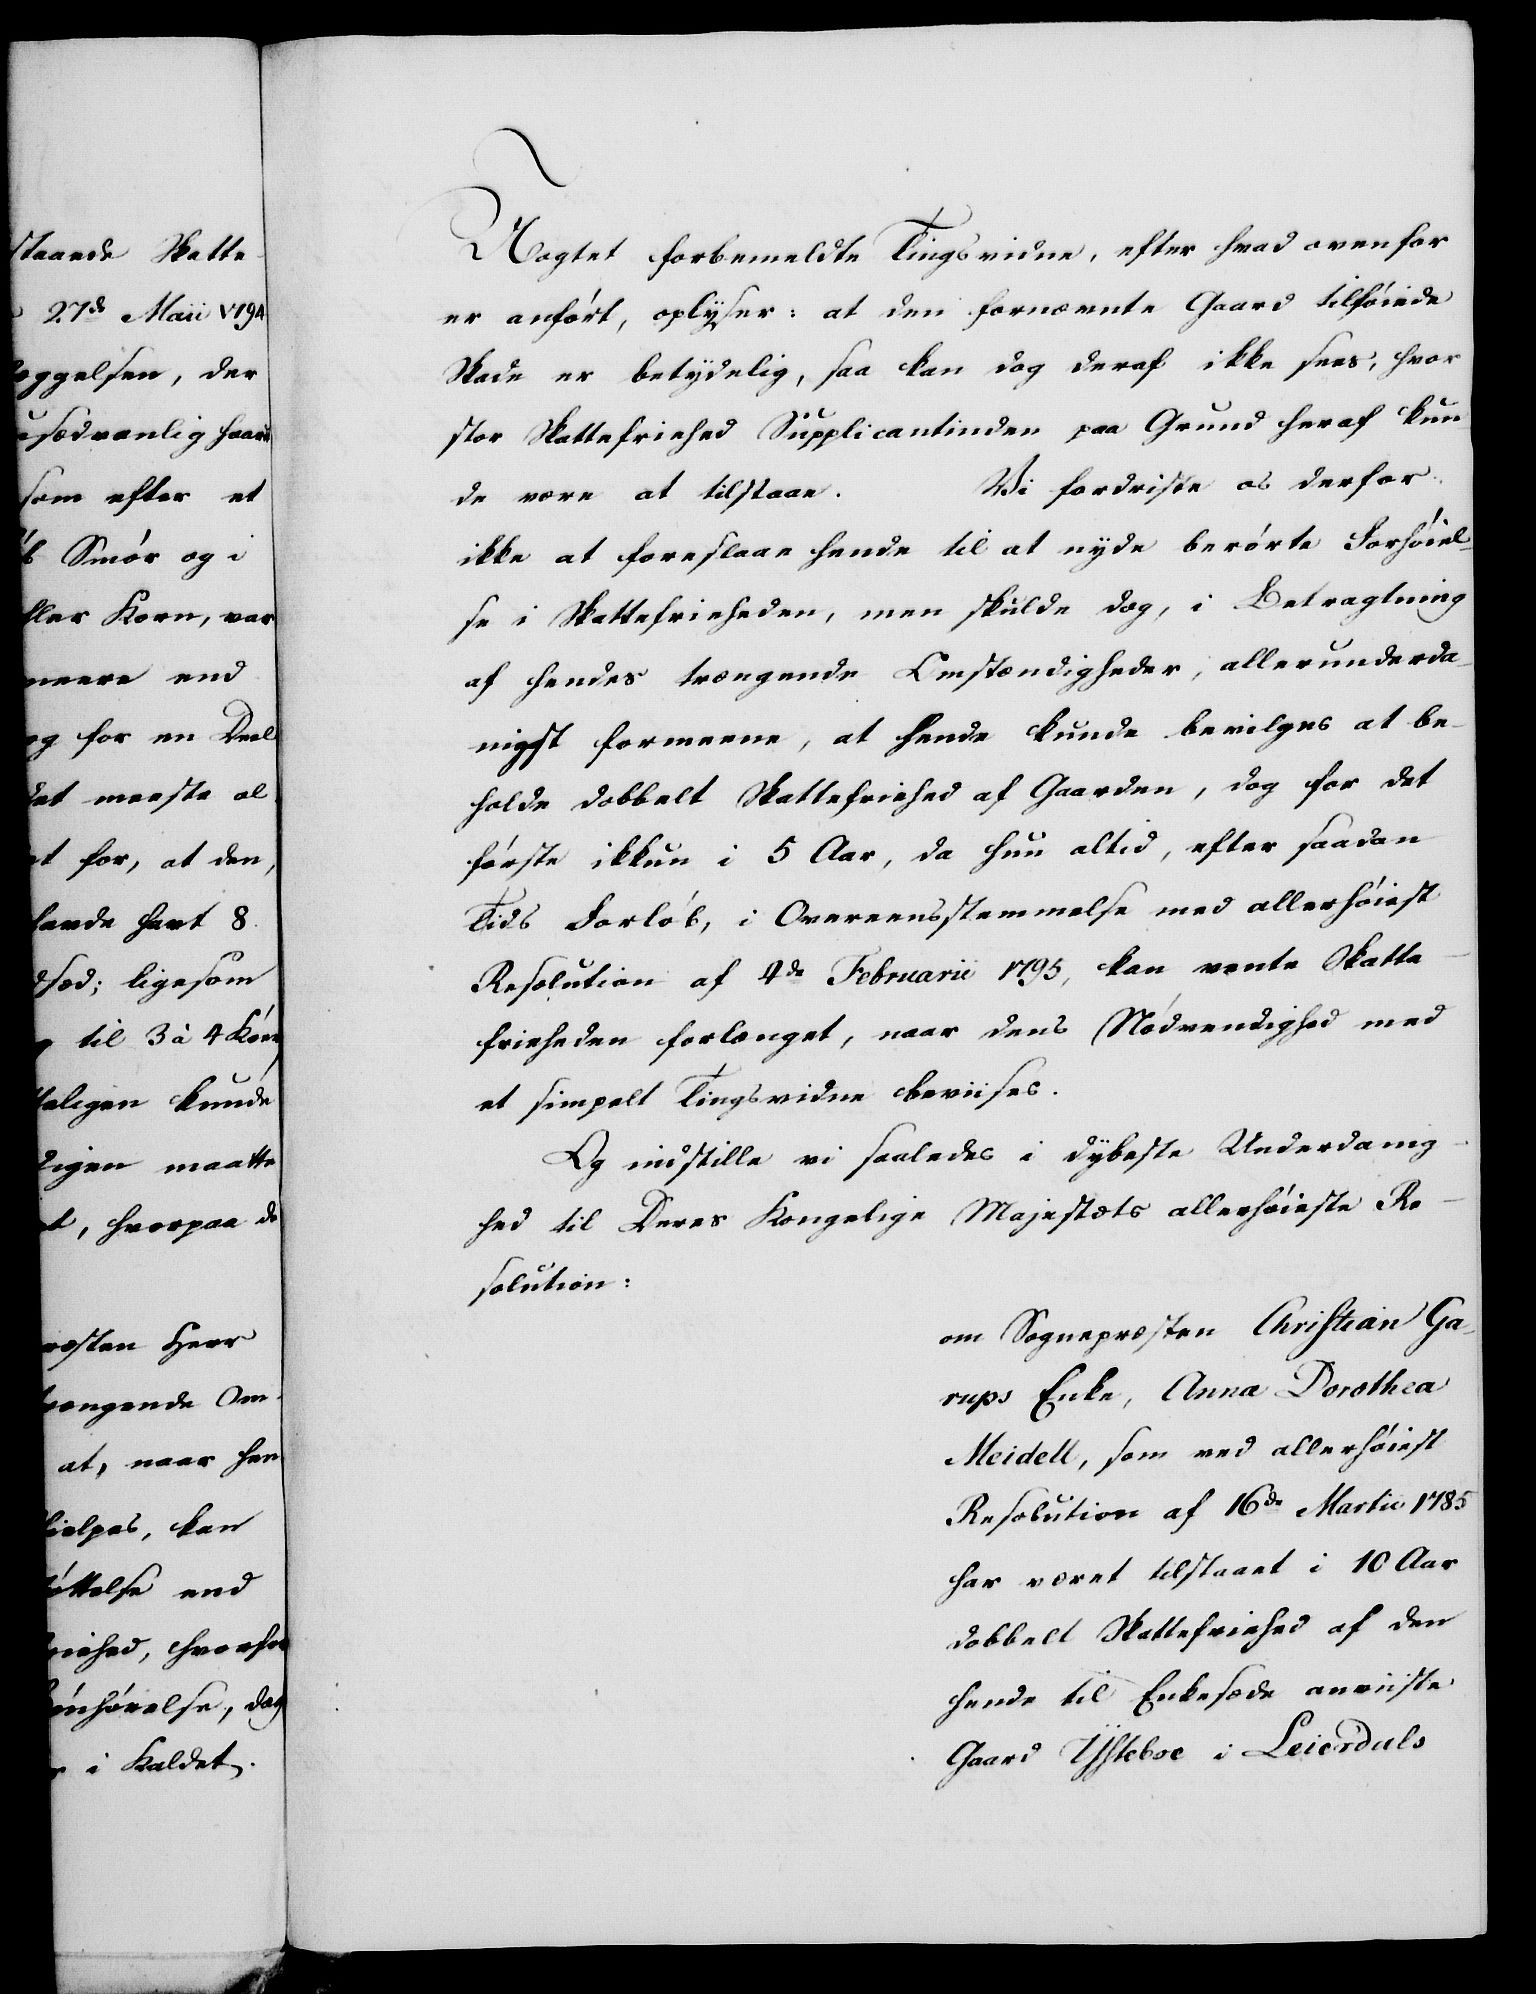 staaende Skatte
27de Maii 1794
eggelsen, der
usædvanlig haard
som efter et
Smör og i
eller Korn, var
meere end
og for en Deel
det meeste al
et for, at den,
havde havt 8
sæd; ligesom
til 3 à 4 Köer
teligen kunde
digen maatte
t, hvorpaa de
ræsten Herr
rængende Om-
at, naar hen
hielpes, kan
öttelse end
riehed, hvorfor
önhörelse, dog
i Kaldet.
Uagtet forbemeldte Tingsvidne, efter hvad ovenfor
er anfört, oplyser: at den fornævnte Gaard tilföiede
Skade er betydelig, saa kan dog deraf ikke sees, hvor
stor Skattefriehed Supplicantinden paa Grund heraf kun
de være at tilstaae. Vi fordriste os derfor
ikke at foreslaae hende til at nyde berörte Forhöiel-
se i Skattefrieheden, men skulde dog, i Betragtning
af hendes trængende Omstændigheder, allerunderda-
nigst formeene, at hende kunde bevilges at be-
holde dobbelt Skattefriehed af Gaarden, dog for det
förste ikkun i 5 Aar, da hun altid, efter saadan
Tids Forlöb, i Overeensstemmelse med allerhöiest
Resolution af 4de Februarii 1795, kan vente Skatte-
frieheden forlænget, naar dens Nödvendighed med
et simpelt Tingsvidne beviises.
Og indstille vi saaledes i dybeste Underdanig-
hed til Deres Kongelige Majestæts allerhöieste Re-
solution:
om Sognepræsten Christian Ga-
rups Enke, Anna Dorothea
Meidell, som ved allerhöiest
Resolution af 16de Martii 1785
har været tilstaaet i 10 Aar
dobbelt Skattefriehed af den
hende til Enkesæde anviiste
Gaard Ysteboe i Leierdals